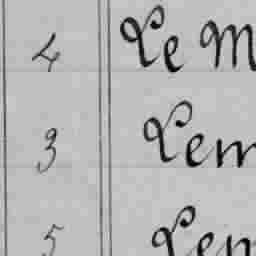 4 Le M
3 Lem
5 Lem